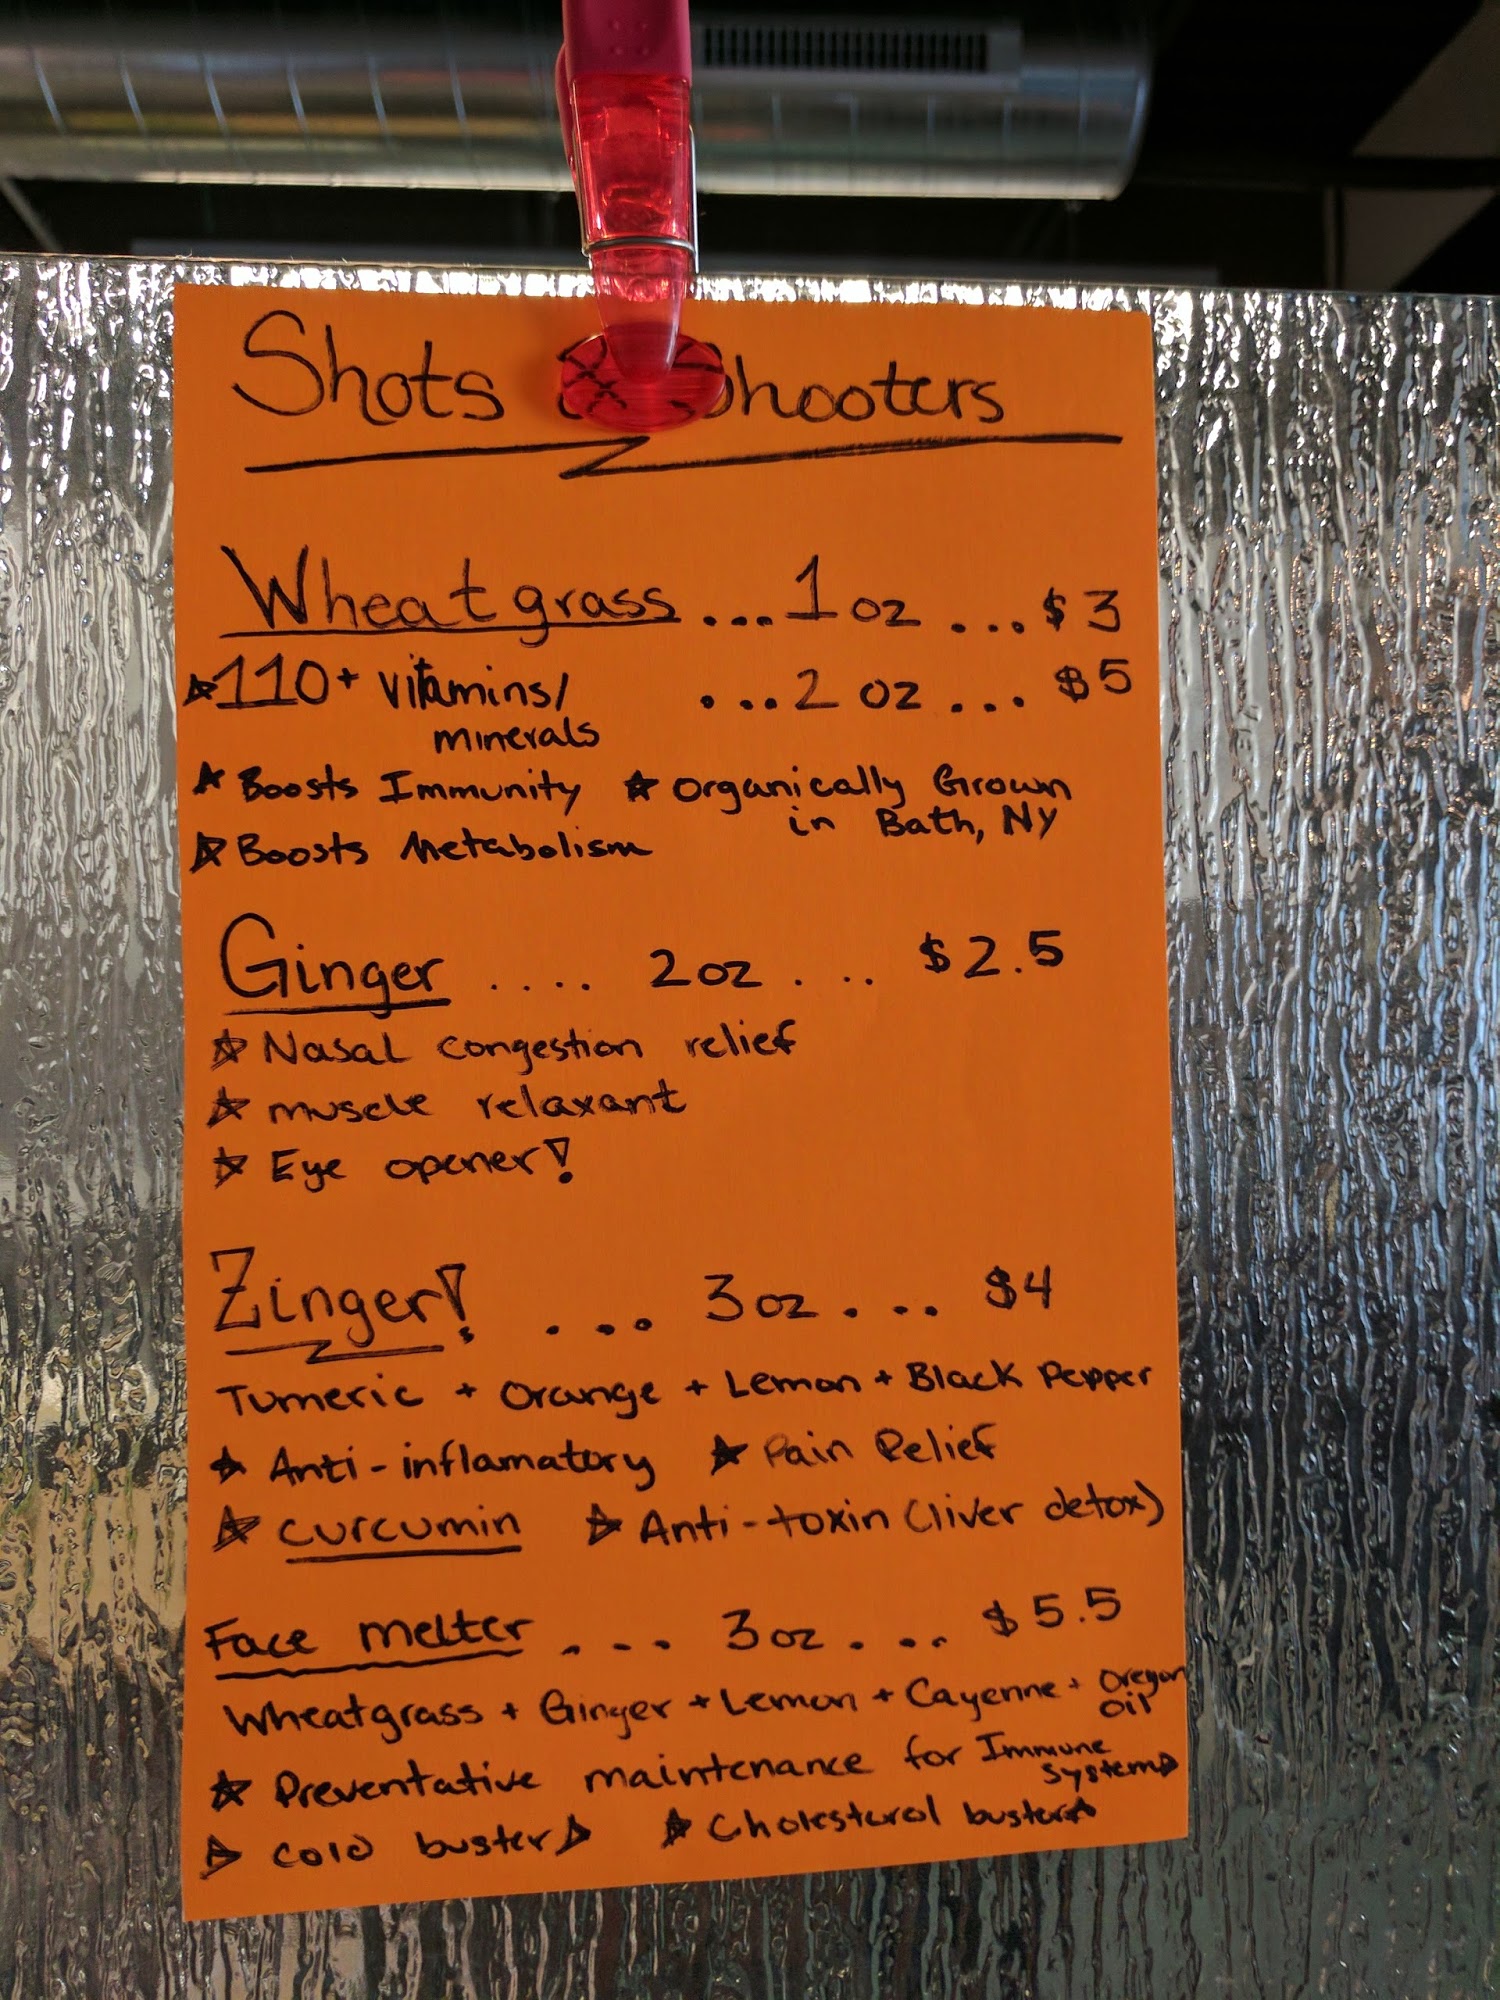 Shots & Shooters
Wheatgrass ... 1 oz ... $3
110+ vitamins/ ... 2 oz ... $5
minerals
Boosts Immunity ★ Organically Grown
in Bath, NY
★ Boosts Metabolism
Ginger .... 2oz ... $2.5
★ Nasal congestion relief
★ muscle relaxant
★ Eye opener!
Zinger! ... 3oz ... $4
Tumeric + Orange + Lemon + Black Pepper
★ Anti-inflamatory ★ Pain Relief
★ curcumin ★ Anti-toxin (liver detox)
Face melter ... 3oz ... $5.5
Wheatgrass + Ginger + Lemon + Cayenne + Oregon
oil
★ Preventative maintenance for Immune
system
★ cold buster ★ Cholesterol buster